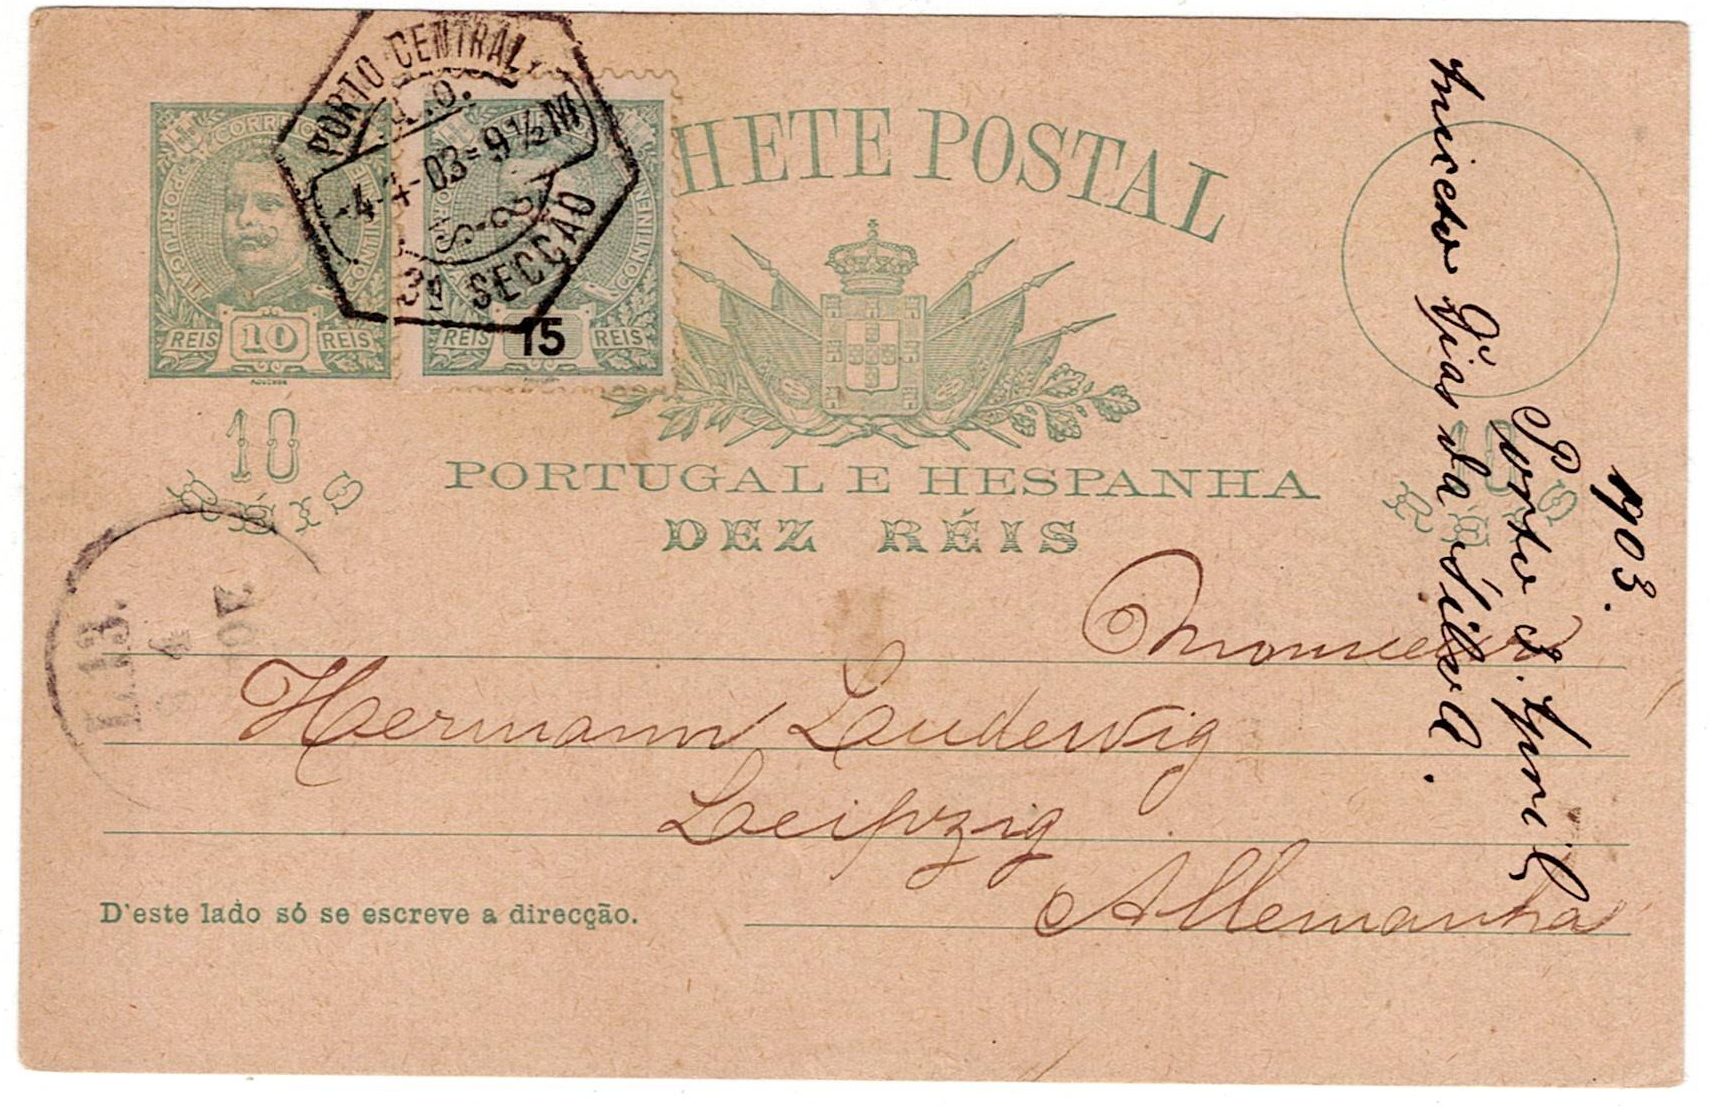 PORTO CENTRAL
4-4-03=9½M
3ª SECÇÃO
CORREIOS
PORTUGAL
CONTINENTE
REIS 10 REIS
CONTINENTE
REIS 15 REIS
HETE POSTAL
10
RÉIS
10
RÉIS
PORTUGAL E HESPANHA
DEZ RÉIS
L.13.
4
Monsieur
Hermann Ludewig
Leipzig
Allemanha
D'este lado só se escreve a direcção.
Aniceto Dias da Silva.
Porto 3. April
1903.